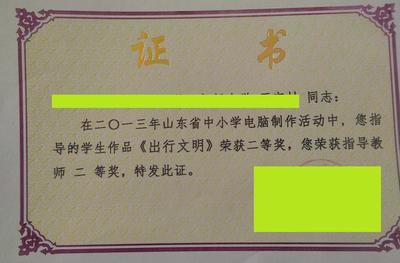 证 书
同志：
在二〇一三年山东省中小学电脑制作活动中，您指
导的学生作品《出行文明》荣获二等奖，您荣获指导教
师 二 等奖，特发此证。